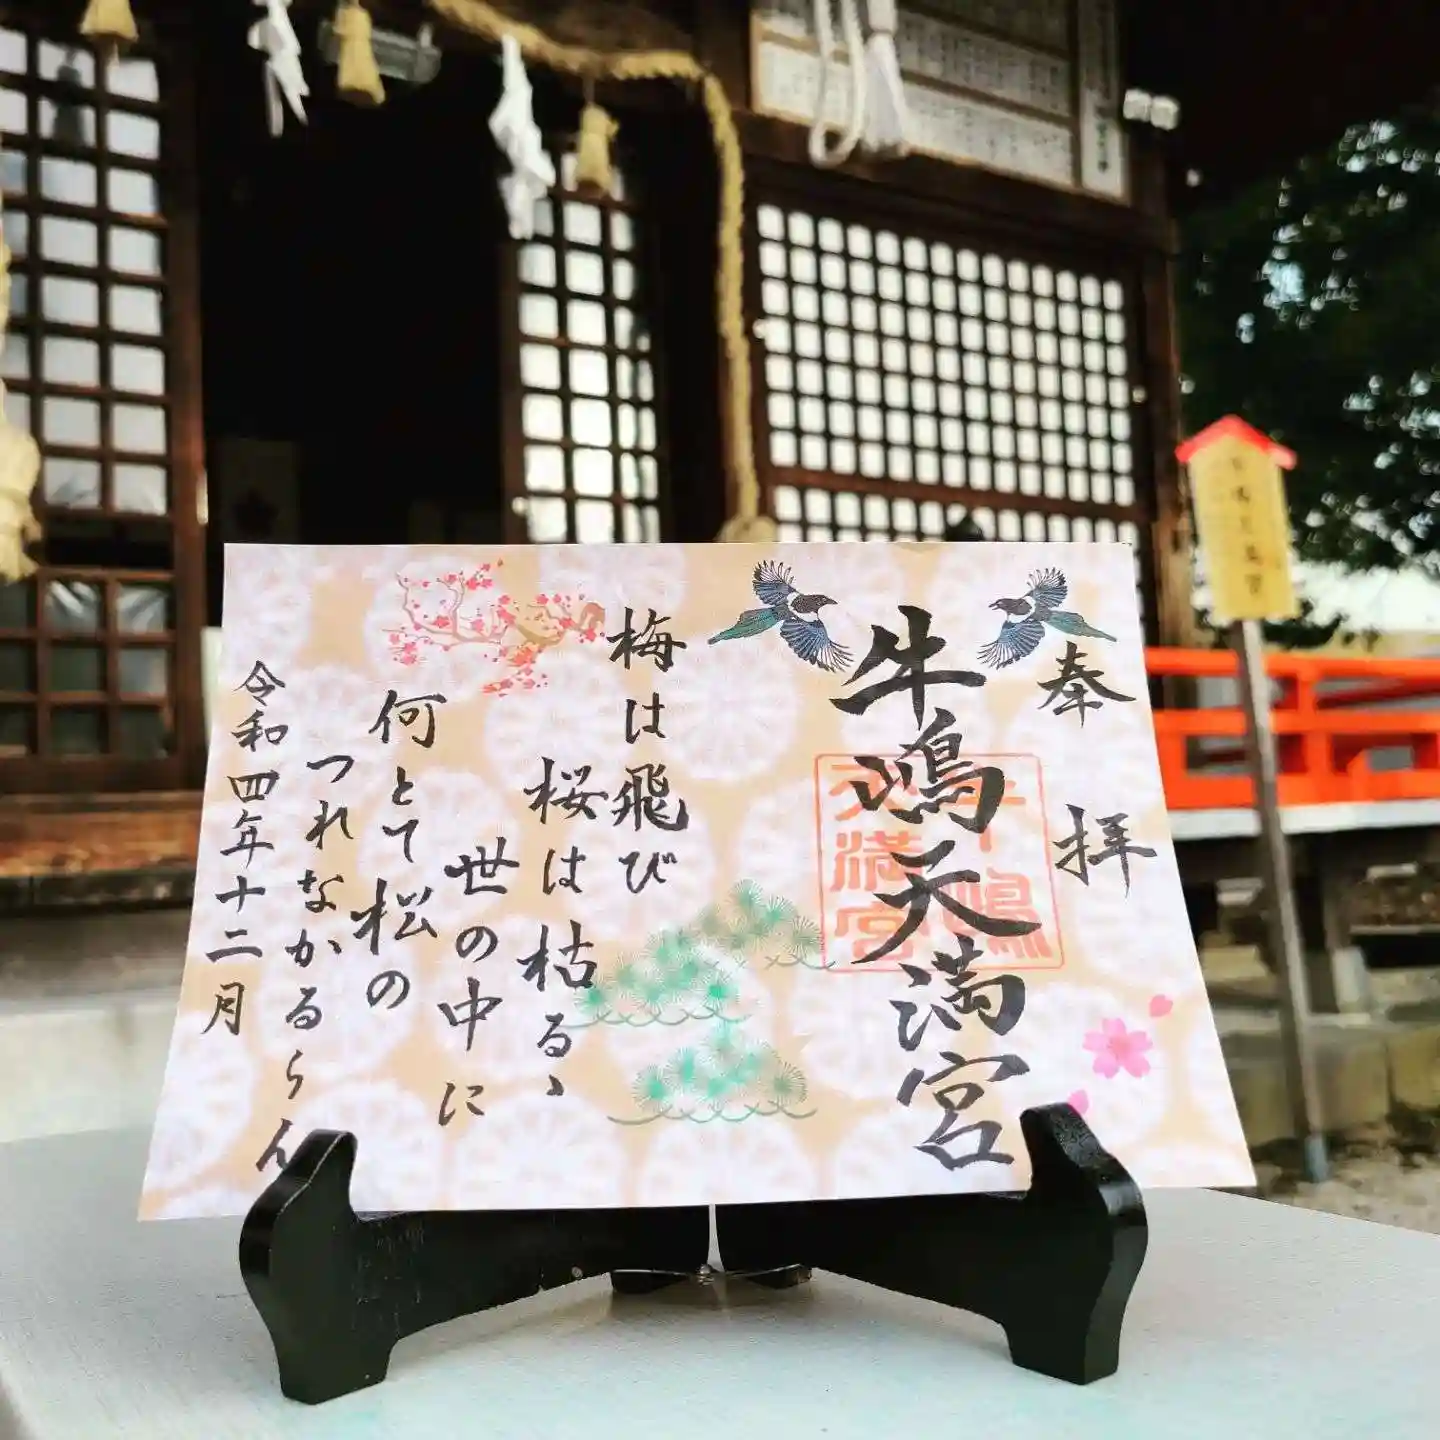 奉拝
牛嶋天満宮
牛嶋
天満宮
梅は飛び
桜は枯るゝ
世の中に
何とて松の
つれなかるらん
令和四年十二月